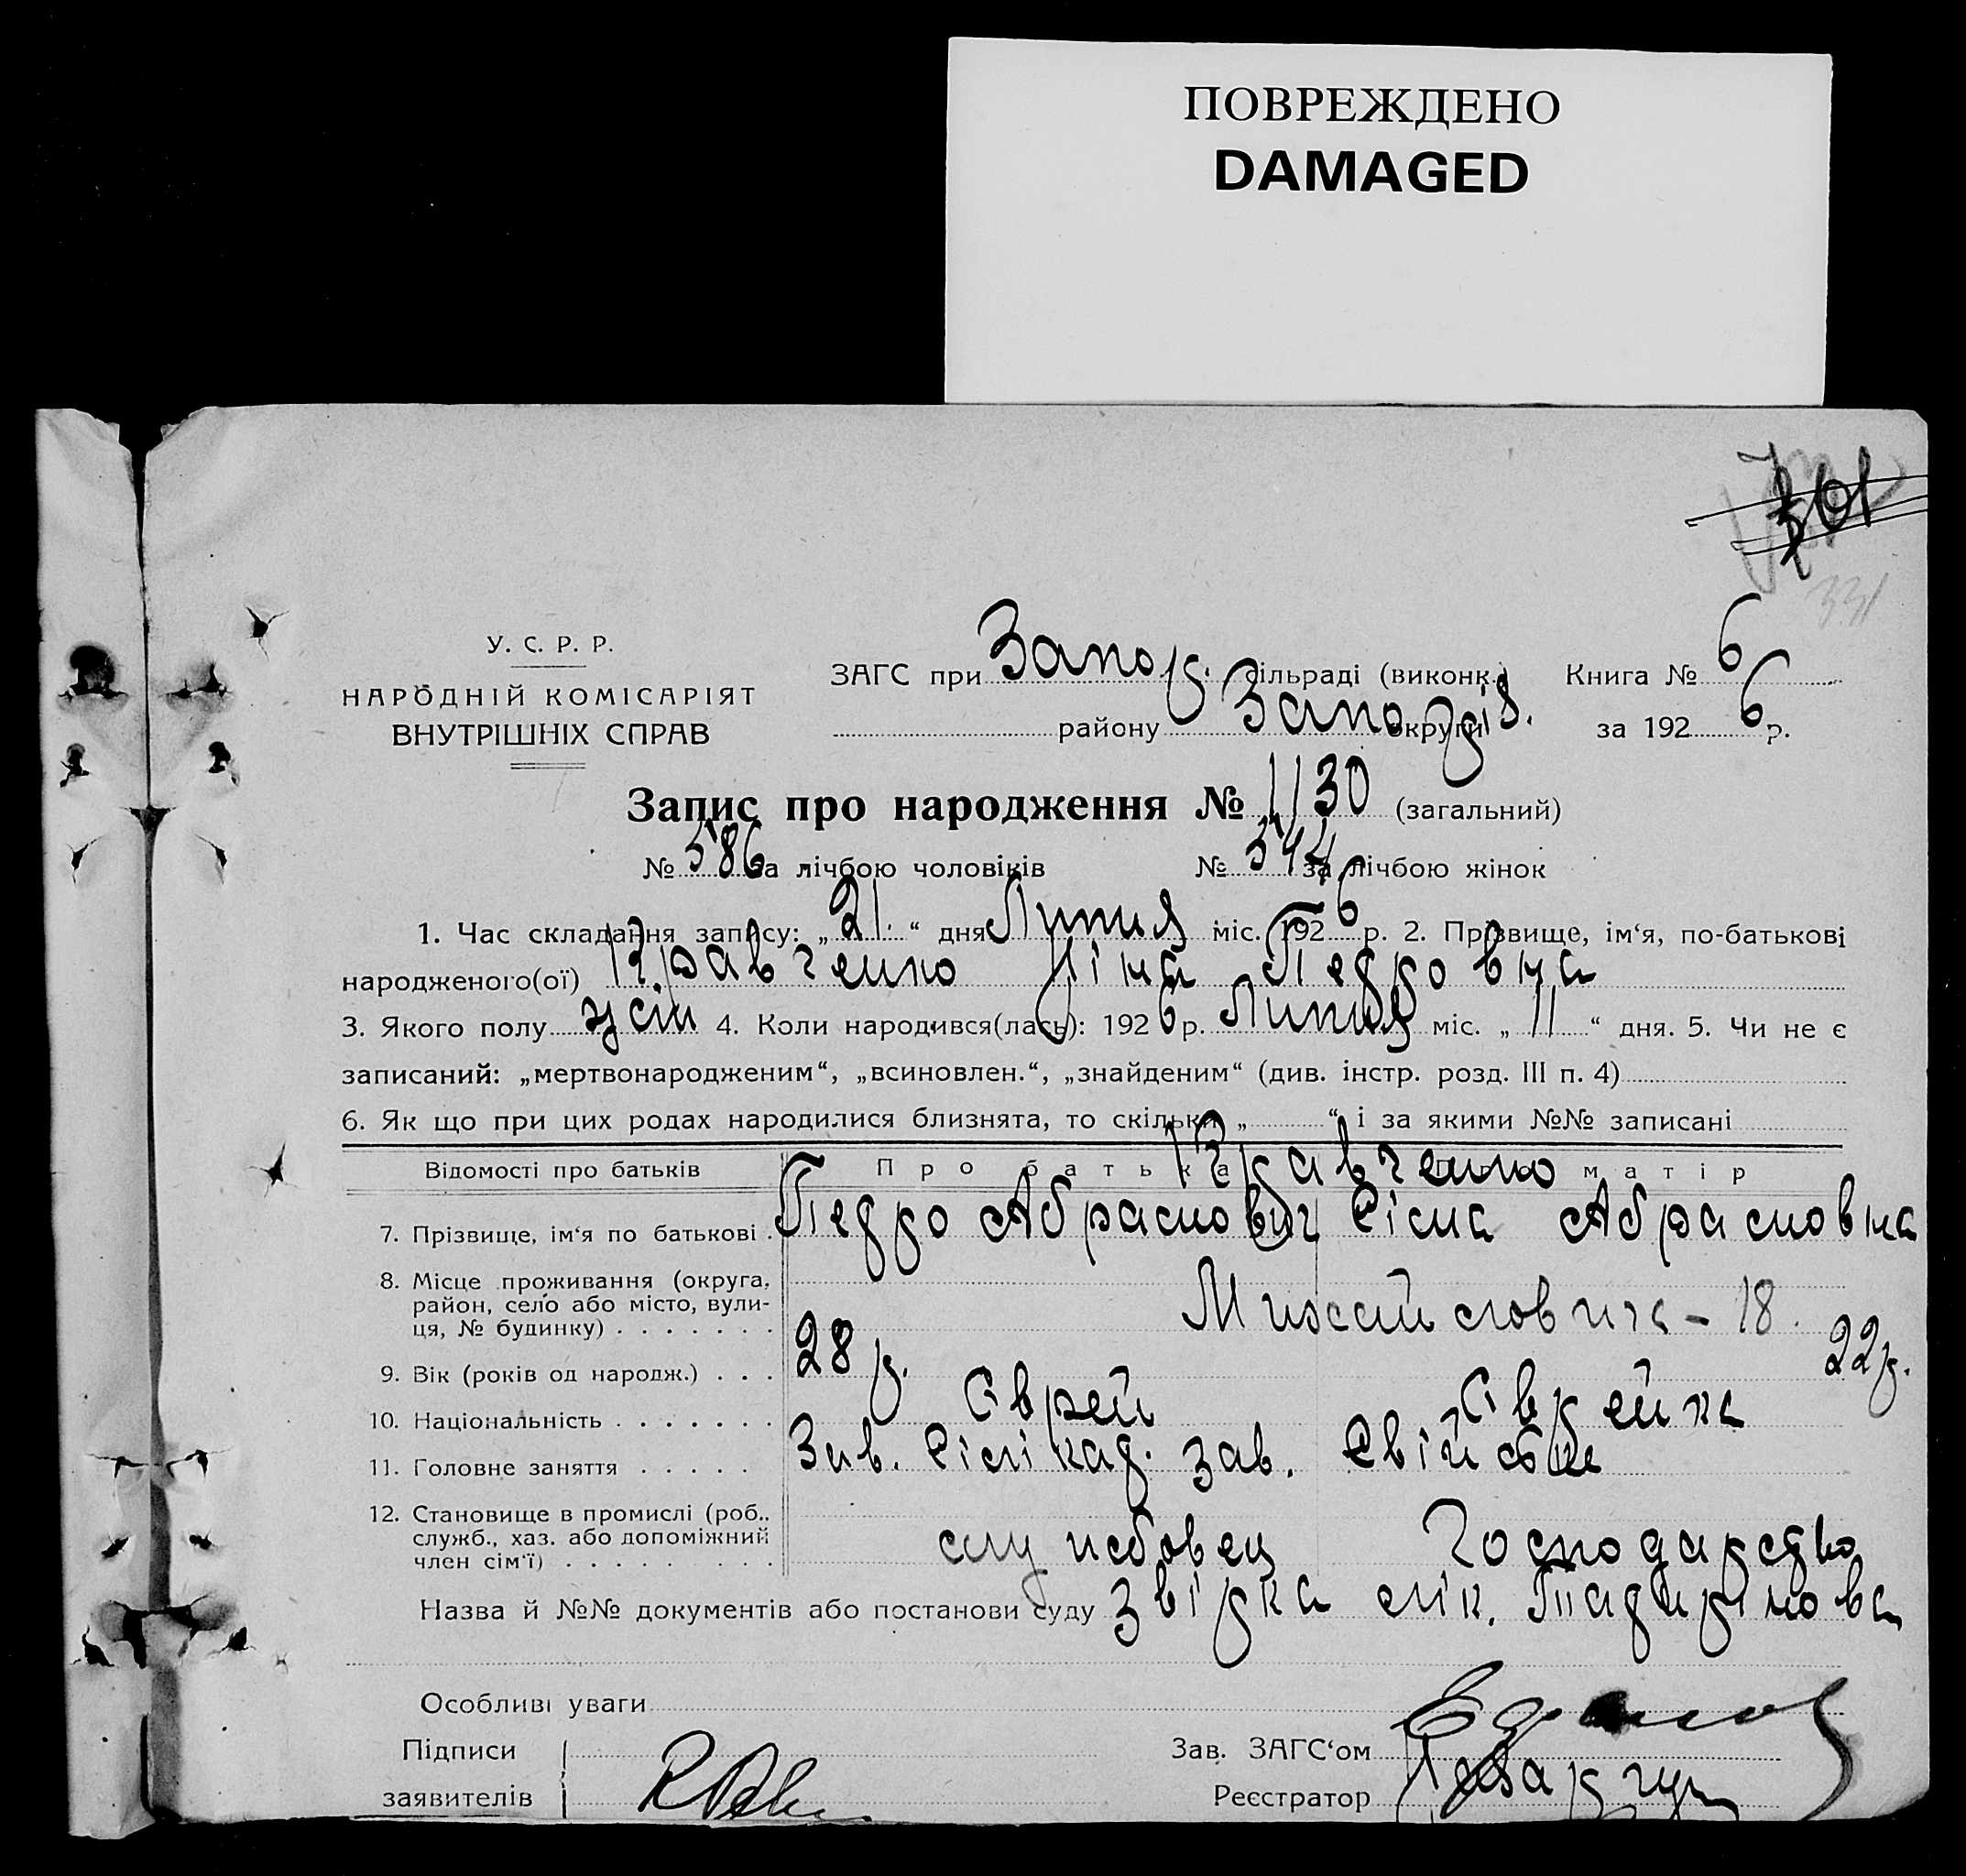 ПОВРЕЖДЕНО
DAMAGED
301
331
У. С. Р. Р.
НАРОДНІЙ КОМІСАРІЯТ
ВНУТРІШНІХ СПРАВ
ЗАГС при Запор. сільраді (виконк.) Книга № 6
району Запоріз. округи за 192 6 р.
Запис про народження № 1130 (загальний)
№ 586 за лічбою чоловіків № 544 за лічбою жінок
1. Час складання запису: „ 21 “ дня Липня міс. 192 6 р. 2. Прізвище, ім‘я, по-батькові
народженого(ої) Кравченко Ліна Педровна
3. Якого полу жін 4. Коли народився(лась): 192 6 р. Липня міс. „ 11 “ дня. 5. Чи не є
записаний: „мертвонародженим“, „всиновлен.“, „знайденим“ (див. інстр. розд. III п. 4)
6. Як що при цих родах народилися близнята, то скільки „ “ і за якими №№ записані
Відомості про батьків Про батька Кравченко матір
7. Прізвище, ім‘я по батькові Педро Абрамович Сіма Абрамовна
8. Місце проживання (округа,
район, село або місто, вули-
ця, № будинку) - 18.
9. Вік (років од народж.) 28 р. 22 р.
10. Національність Єврей Єврейка
11. Головне заняття Зав. зав. Свійське
12. Становище в промислі (роб.,
служб., хаз. або допоміжний
член сім‘ї) службовець Господарство
Назва й №№ документів або постанови суду Звірка лік.
Особливі уваги
Підписи Зав. ЗАГС‘ом
заявителів Реєстратор